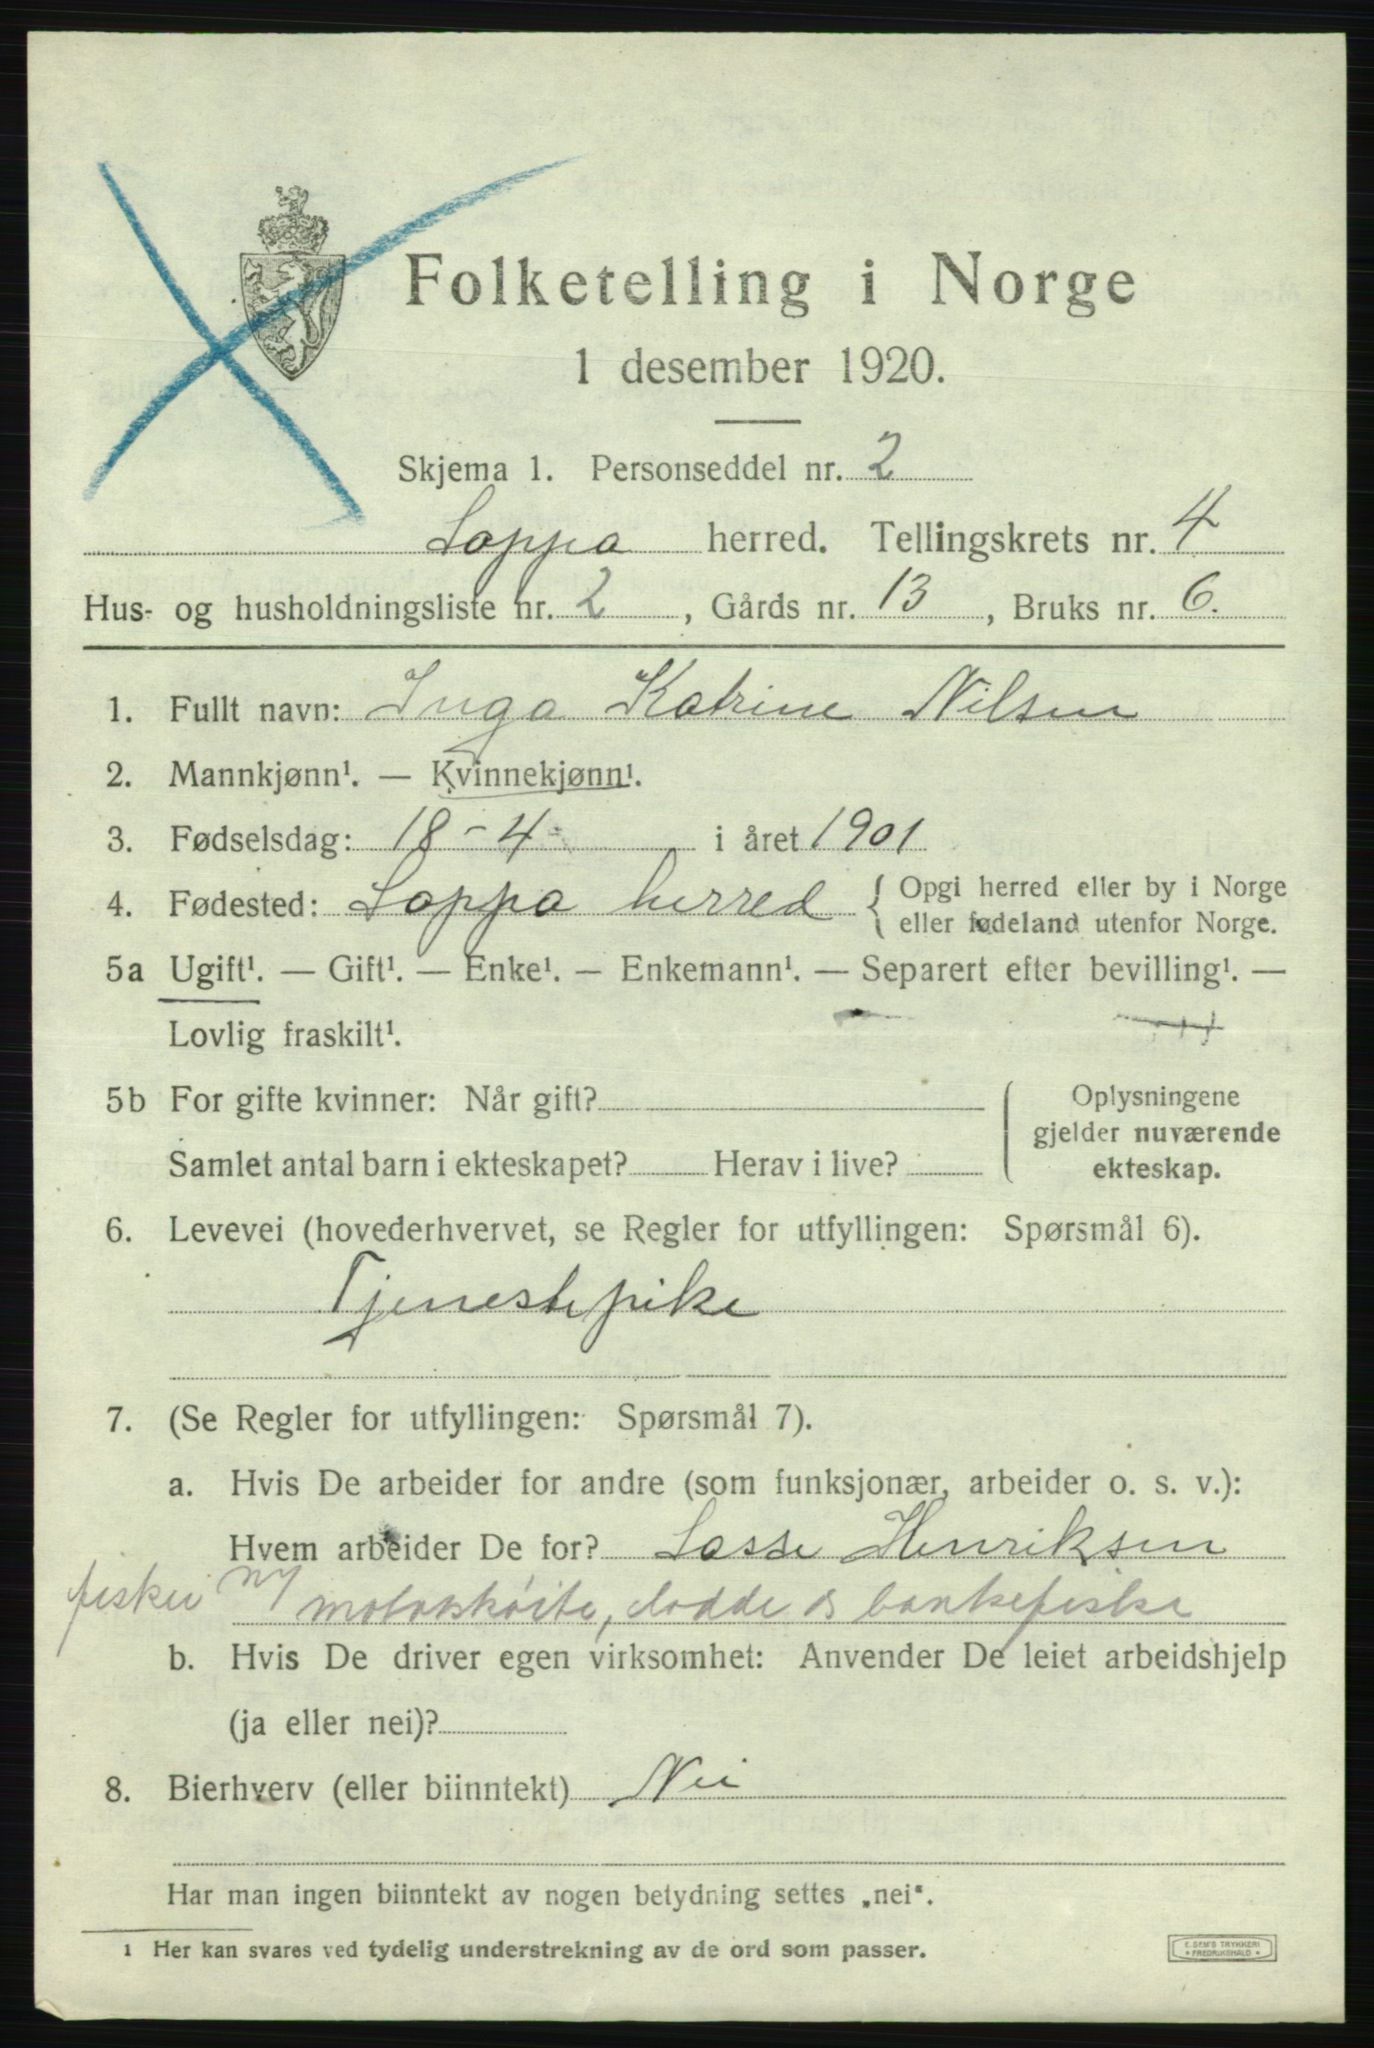 Folketelling i Norge
1 desember 1920.
Skjema 1. Personseddel nr. 2
Loppa herred. Tellingskrets nr. 4
Hus- og husholdningsliste nr. 2, Gårds nr. 13, Bruks nr. 6.
1. Fullt navn: Inga Katrine Nilsen
2. Mannkjønn¹. — Kvinnekjønn¹.
3. Fødselsdag: 18-4- i året 1901
4. Fødested: Loppa herred { Opgi herred eller by i Norge
eller fødeland utenfor Norge.
5a Ugift¹. — Gift¹. — Enke¹. — Enkemann¹. — Separert efter bevilling¹. —
Lovlig fraskilt¹.
5b For gifte kvinner: Når gift?
Samlet antal barn i ekteskapet? Herav i live?
Oplysningene
gjelder nuværende
ekteskap.
6. Levevei (hovederhvervet, se Regler for utfyllingen: Spørsmål 6).
Tjenestepike
7. (Se Regler for utfyllingen: Spørsmål 7).
a. Hvis De arbeider for andre (som funksjonær, arbeider o. s. v.):
Hvem arbeider De for? Lasse Henriksen
fisker m/ motorskøite, lodde og bankefiske
b. Hvis De driver egen virksomhet: Anvender De leiet arbeidshjelp
(ja eller nei)?
8. Bierhverv (eller biinntekt) Nei
Har man ingen biinntekt av nogen betydning settes „nei“.
1 Her kan svares ved tydelig understrekning av de ord som passer.
E. SEM'S TRYKKERI
FREDRIKSHALD